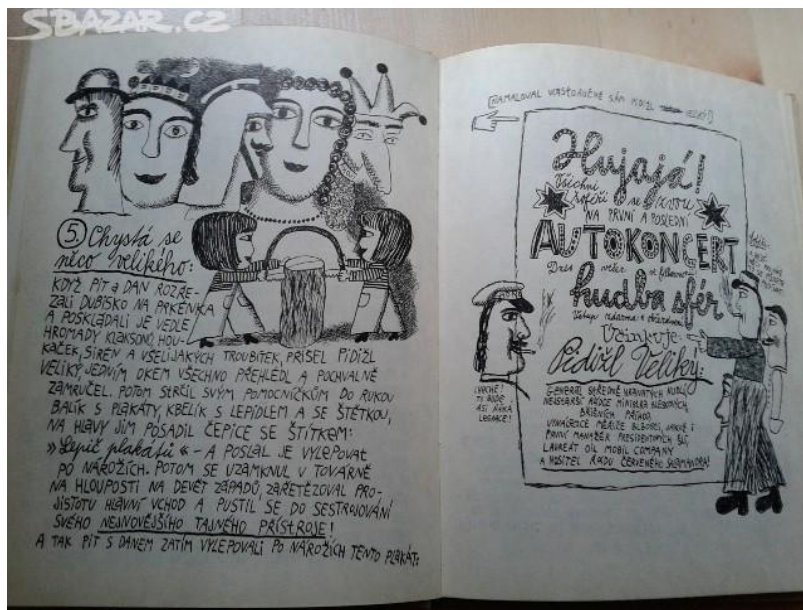 SBAZAR.CZ
5. Chystá se
něco velikého:
KDYŽ PIT a DAN ROZŘE-
ZALI DUBISKO NA PRKÉNKA
A POSKLÁDALI JE VEDLE
HROMADY KLAKSONŮ, HOU-
KAČEK, SIRÉN A VŠELIJAKÝCH TROUBÍTEK, PŘIŠEL PIDIŽL
VELIKÝ, JEDNÍM OKEM VŠECHNO PŘEHLÉDL A POCHVALNĚ
ZAMRUČEL. POTOM STRČIL SVÝM POMOCNÍČKŮM DO RUKOU
BALÍK S PLAKÁTY, KBELÍK S LEPIDLEM A SE ŠTĚTKOU,
NA HLAVY JIM POSADIL ČEPICE SE ŠTÍTKEM:
»Lepič plakátů« – A POSLAL JE VYLEPOVAT
PO NÁROŽÍCH. POTOM SE UZAMKNUL V TOVÁRNĚ
NA HLOUPOSTI NA DEVĚT ZÁPADŮ, ZAŘETĚZOVAL PRO-
JISTOTU HLAVNÍ VCHOD A PUSTIL SE DO SESTROJOVÁNÍ
SVÉHO NEJNOVĚJŠÍHO TAJNÉHO PŘÍSTROJE!
A TAK PIT S DANEM ZATÍM VYLEPOVALI PO NÁROŽÍCH TENTO PLAKÁT:
NAMALOVAL VLASTORUČNĚ SÁM PIDIŽL VELIKÝ
Hujajá!
Všichni šoféři se zvou
NA PRVNÍ A POSLEDNÍ
AUTOKONCERT
Dnes večer
hudba sfér
Vstup zdarma
Účinkuje:
Pidižl Veliký:
GENERÁL STŘEDNĚ HRAVATÝCH NUDLÍ,
NEJSTARŠÍ RÁDCE MINISTRA
BŘIŠNÍCH PŘÍHOD,
VYNÁLEZCE MĚŘIČE BLBOSTI, JAKOŽ I
PRVNÍ MANAŽER PRESIDENTOVÝCH
LAUREÁT OIL MOBIL COMPANY
A NOSITEL ŘÁDU ČERVENÉHO SALAMANDRA!
CHECHÉ!
TO BUDE
ASI ŇÁKÁ
LEGRACE!